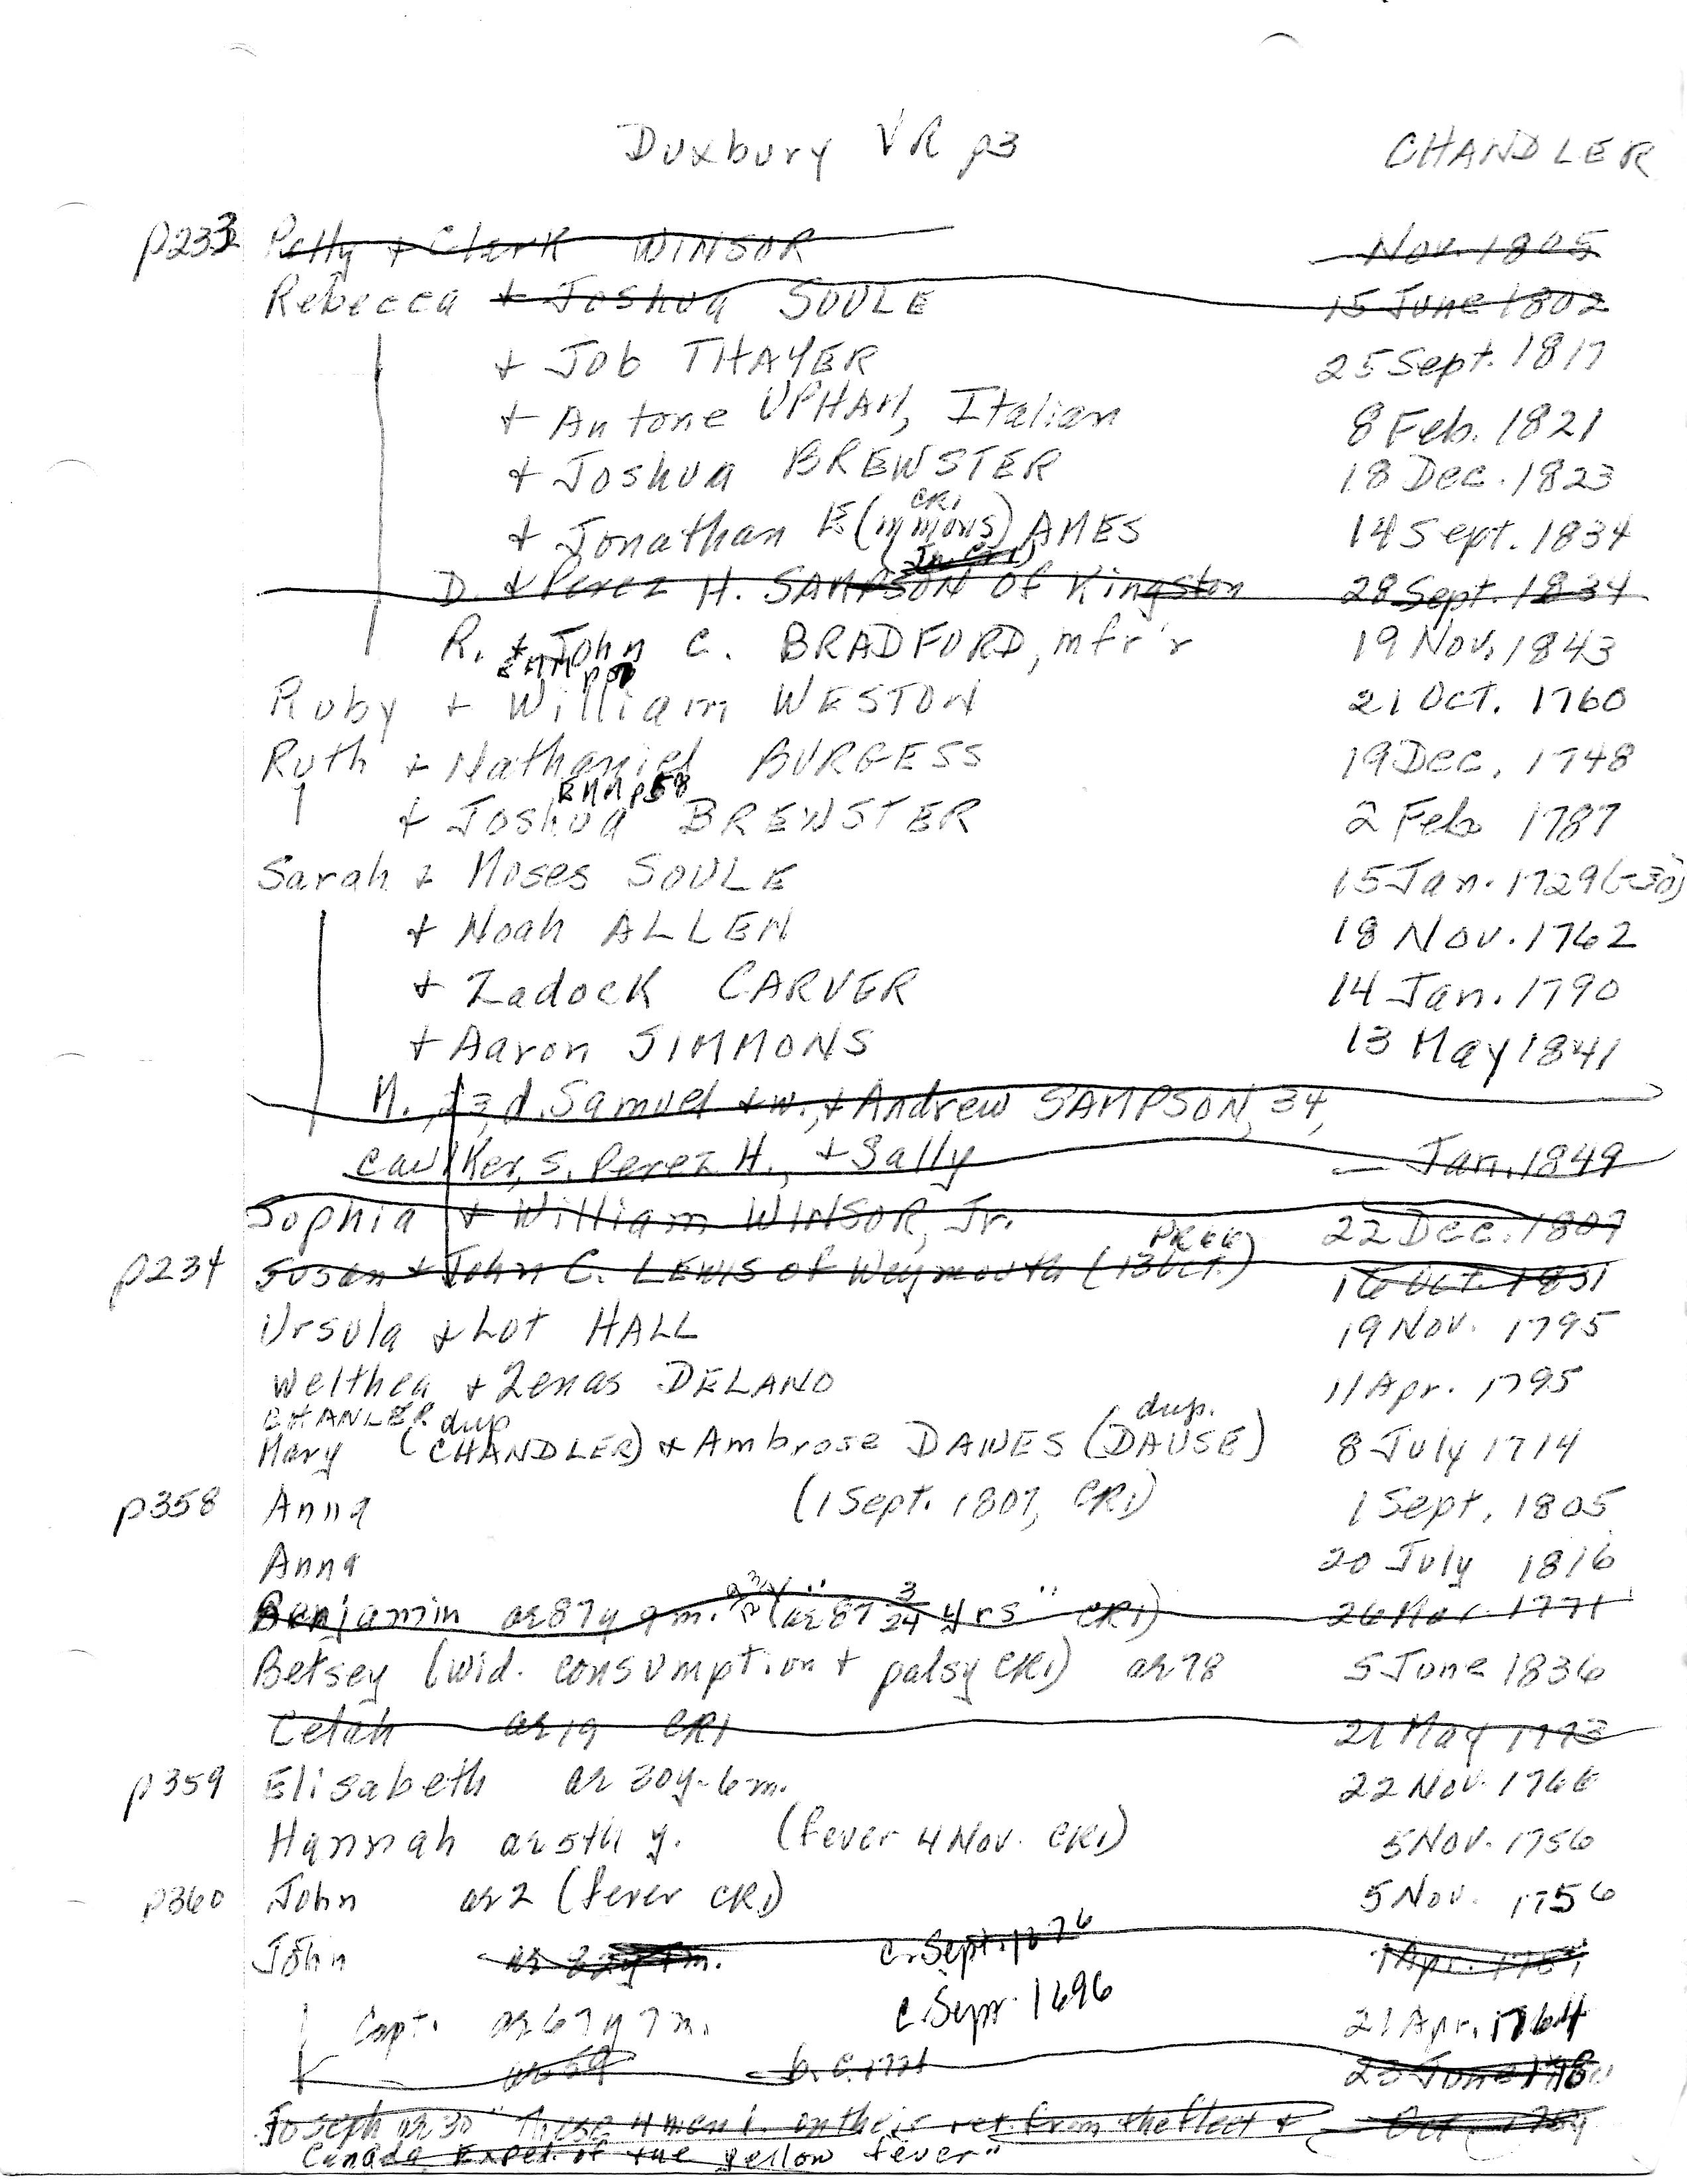 Duxbury VR p3 CHANDLER
p233 Polly + Clark WINSOR Nov. 1805
Rebecca + Joshua SOULE 15 June 1802
+ Job THAYER 25 Sept. 1817
+ Antone UPHAM, Italian 8 Feb. 1821
+ Joshua BREWSTER 18 Dec. 1823
CR1
+ Jonathan E(mmons) AMES 14 Sept. 1834
D. + Perez H. SAMPSON of Kingston 28 Sept. 1834
R. + John C. BRADFORD, mfr'r 19 Nov. 1843
Ruby + William WESTON 21 Oct. 1760
Ruth + Nathaniel BURGESS 19 Dec. 1748
p58
+ Joshua BREWSTER 2 Feb 1787
Sarah + Moses SOULE 15 Jan. 1729(-30)
+ Noah ALLEN 18 Nov. 1762
+ Zadock CARVER 14 Jan. 1790
+ Aaron SIMMONS 13 May 1841
M., 23, d. Samuel + w., + Andrew SAMPSON, 34,
caulker, s. Perez H., + Sally Jan. 1849
Sophia + William WINSOR, Jr. 22 Dec. 1807
PR66
p234 Susan + John C. LEWIS of Weymouth (13 Oct.) 16 Oct. 1831
Ursula + Lot HALL 19 Nov. 1795
Welthea + Zenas DELANO 11 Apr. 1795
CHANLER dup dup.
Mary (CHANDLER) + Ambrose DAWES (DAUSE) 8 July 1714
p358 Anna (1 Sept. 1807, CR1) 1 Sept. 1805
Anna 20 July 1816
Benjamin ae 87y 9m. (ae "87 3/24 yrs" CR1) 26 Mar. 1771
Betsey (wid. consumption + palsy CR1) ae 78 5 June 1836
Celah ae 19 CR1 21 May 1773
p359 Elisabeth ae 30y-6m. 22 Nov. 1766
Hannah ae 5th y. (fever 4 Nov. CR1) 5 Nov. 1756
p360 John ae 2 (fever CR1) 5 Nov. 1756
John c. Sept. 1676
Capt. ae 67y 7m. c. Sept. 1696 21 Apr. 1764
ae 59 23 June
Joseph ae 30 "These 4 men d. on their ret. from the fleet + Oct.
Canada Exped. of the yellow fever"